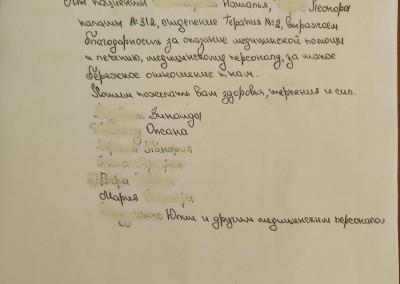 От пациентки Наталья, Леонора
палаты №312, отделение Терапия №2, выражаем
благодарность за оказание медицинской помощи
и лечению, медицинскому персоналу, за такое
бережное отношение к нам.
Хотим пожелать вам здоровья, терпения и сил.
Зинаида
Оксана
Мария
Юлии и другим медицинским персоналом